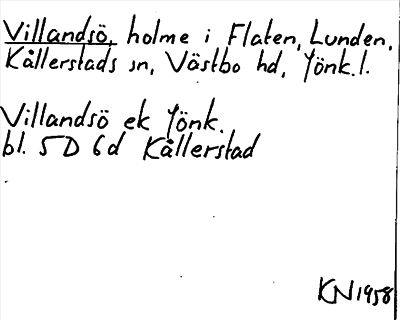 Villandsö, holme i Flaten, Lunden,
Kållerstads sn, Västbo hd, Jönk.l.
Villandsö ek Jönk.
bl. 5D 6d Kållerstad
KN1958